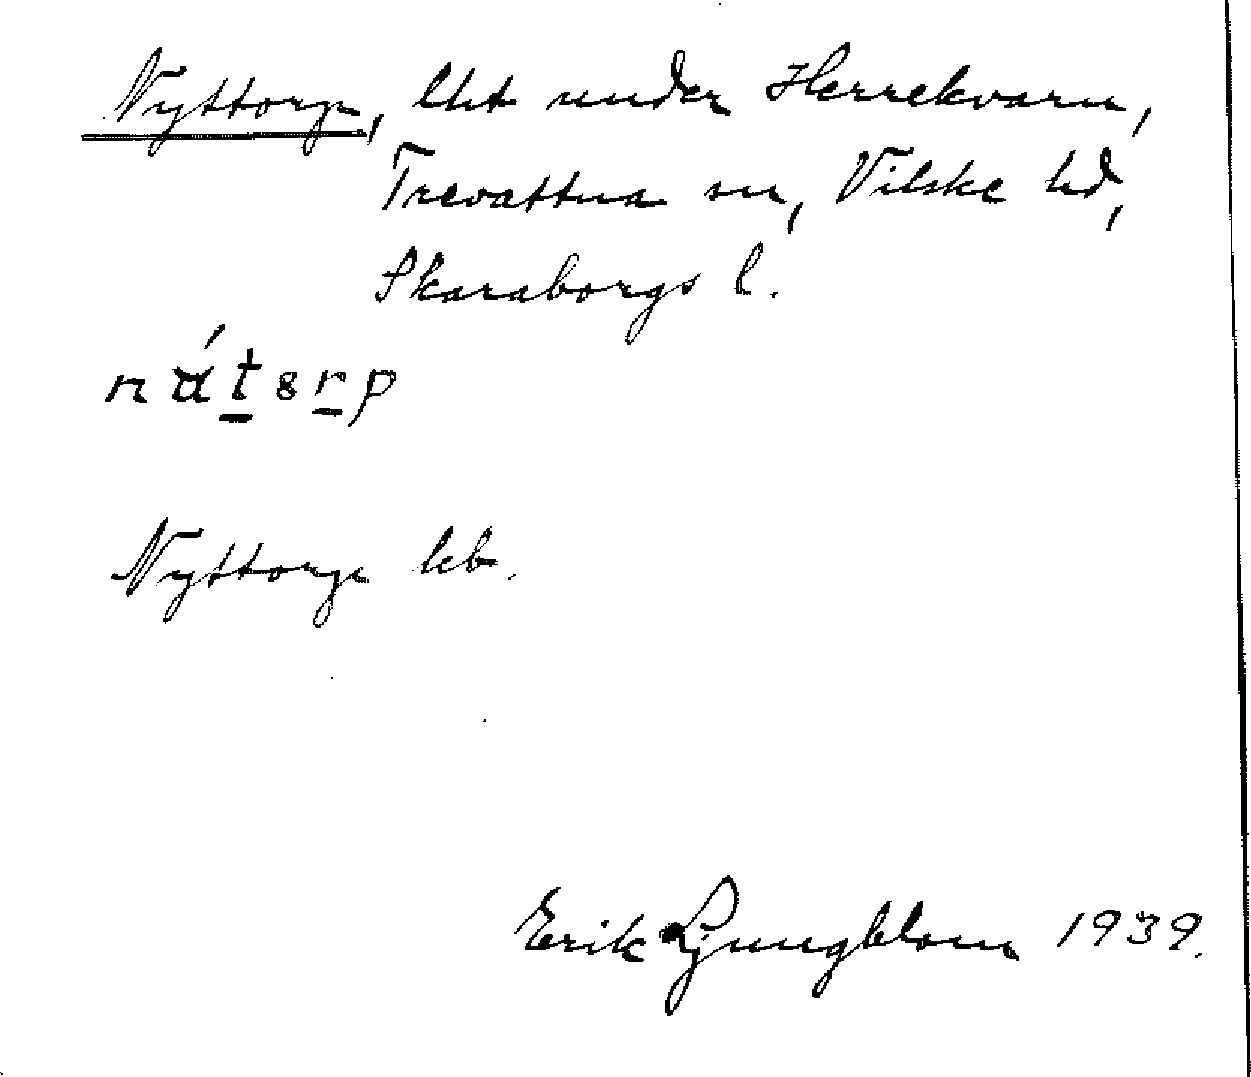 Nyttorp, lht under Herrekvarn,
Trevattna sn, Vilske hd,
Skaraborgs l.
Nyttorp kb.
Erik Ljungblom 1939.